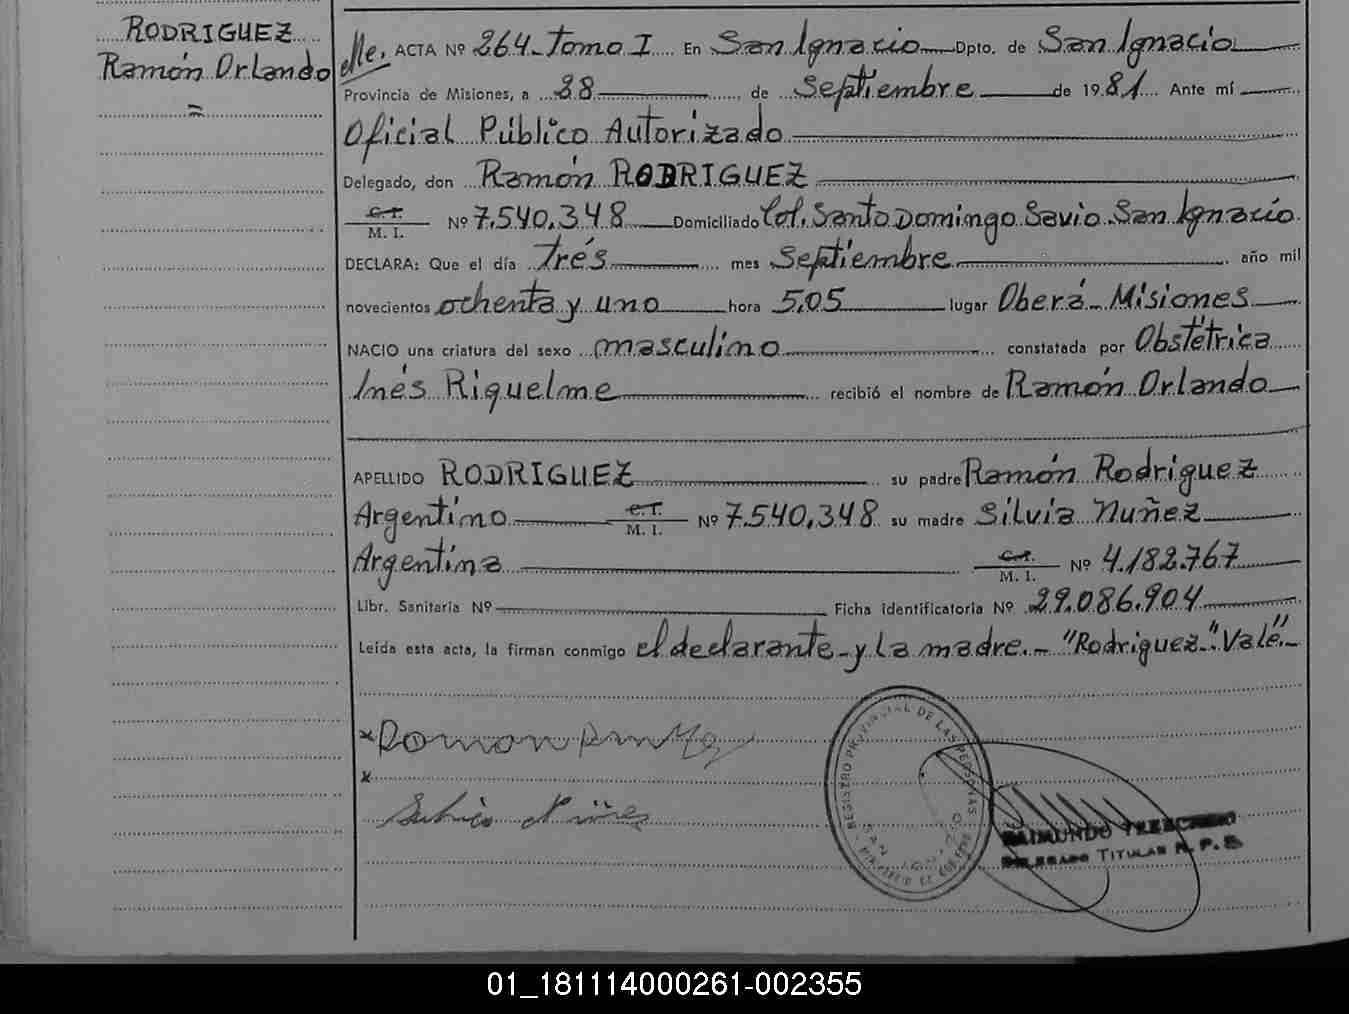 RODRIGUEZ
Ramón Orlando
=
ACTA Nº 264 - Tomo I En San Ignacio Dpto. de San Ignacio
Provincia de Misiones, a 28 de Septiembre de 1981 Ante mí
Oficial Público Autorizado
Delegado, don Ramón RODRIGUEZ
C.I. M. I. Nº 7.540.348 Domiciliado Col. Santo Domingo Savio San Ignacio
DECLARA: Que el día trés mes Septiembre año mil
novecientos ochenta y uno hora 5,05 lugar Oberá - Misiones
NACIO una criatura del sexo masculino constatada por Obstétrica
Inés Riquelme recibió el nombre de Ramón Orlando
APELLIDO RODRIGUEZ su padre Ramón Rodriguez
Argentino C.I. M. I. Nº 7.540.348 su madre Silvia Nuñez
Argentina C.I. M. I. Nº 4.182.767
Libr. Sanitaria Nº Ficha identificatoria Nº 29.086.904
Leída esta acta, la firman conmigo el declarante - y la madre. - "Rodriguez" "Vale" -
REGISTRO PROVINCIAL DE LAS PERSONAS
SAN IGNACIO
RAIMUNDO
DELEGADO TITULAR R. P. P.
01_181114000261-002355